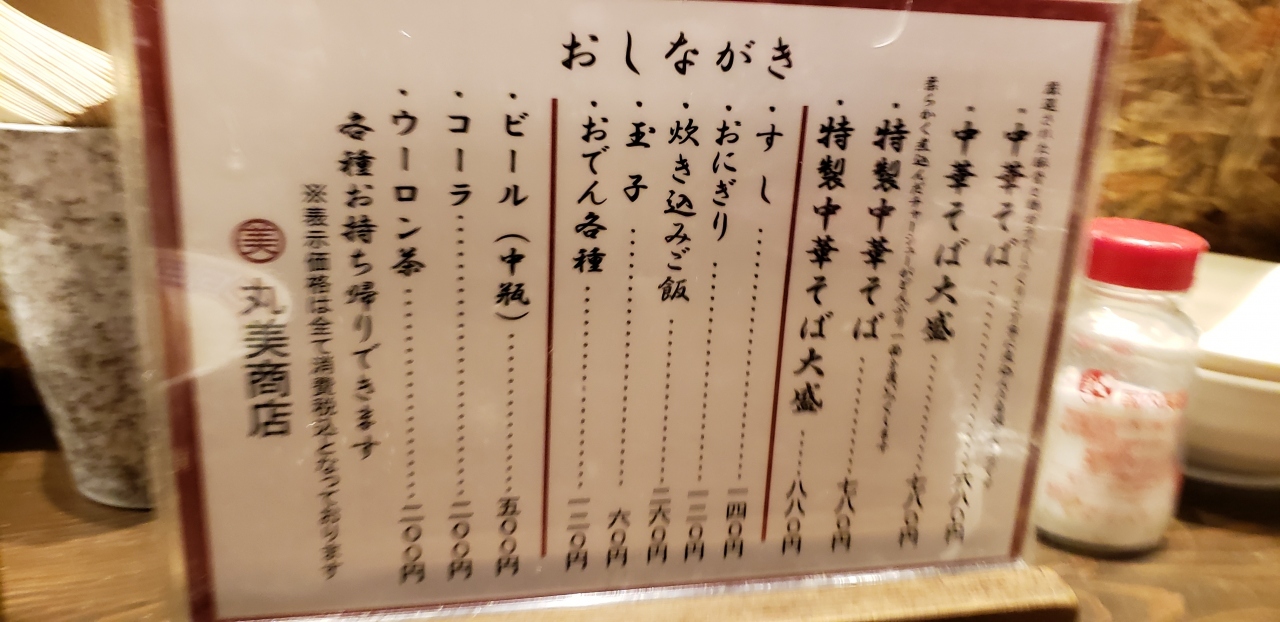 おしながき
・中華そば
六八〇円
・中華そば大盛
七八〇円
・特製中華そば
七八〇円
・特製中華そば大盛
八八〇円
・すし
一四〇円
・おにぎり
一二〇円
・炊き込みご飯
二六〇円
・玉子
六〇円
・おでん各種
一二〇円
・ビール（中瓶）
五〇〇円
・コーラ
二〇〇円
・ウーロン茶
二〇〇円
各種お持ち帰りできます
※表示価格は全て消費税込となっております
美 丸美商店